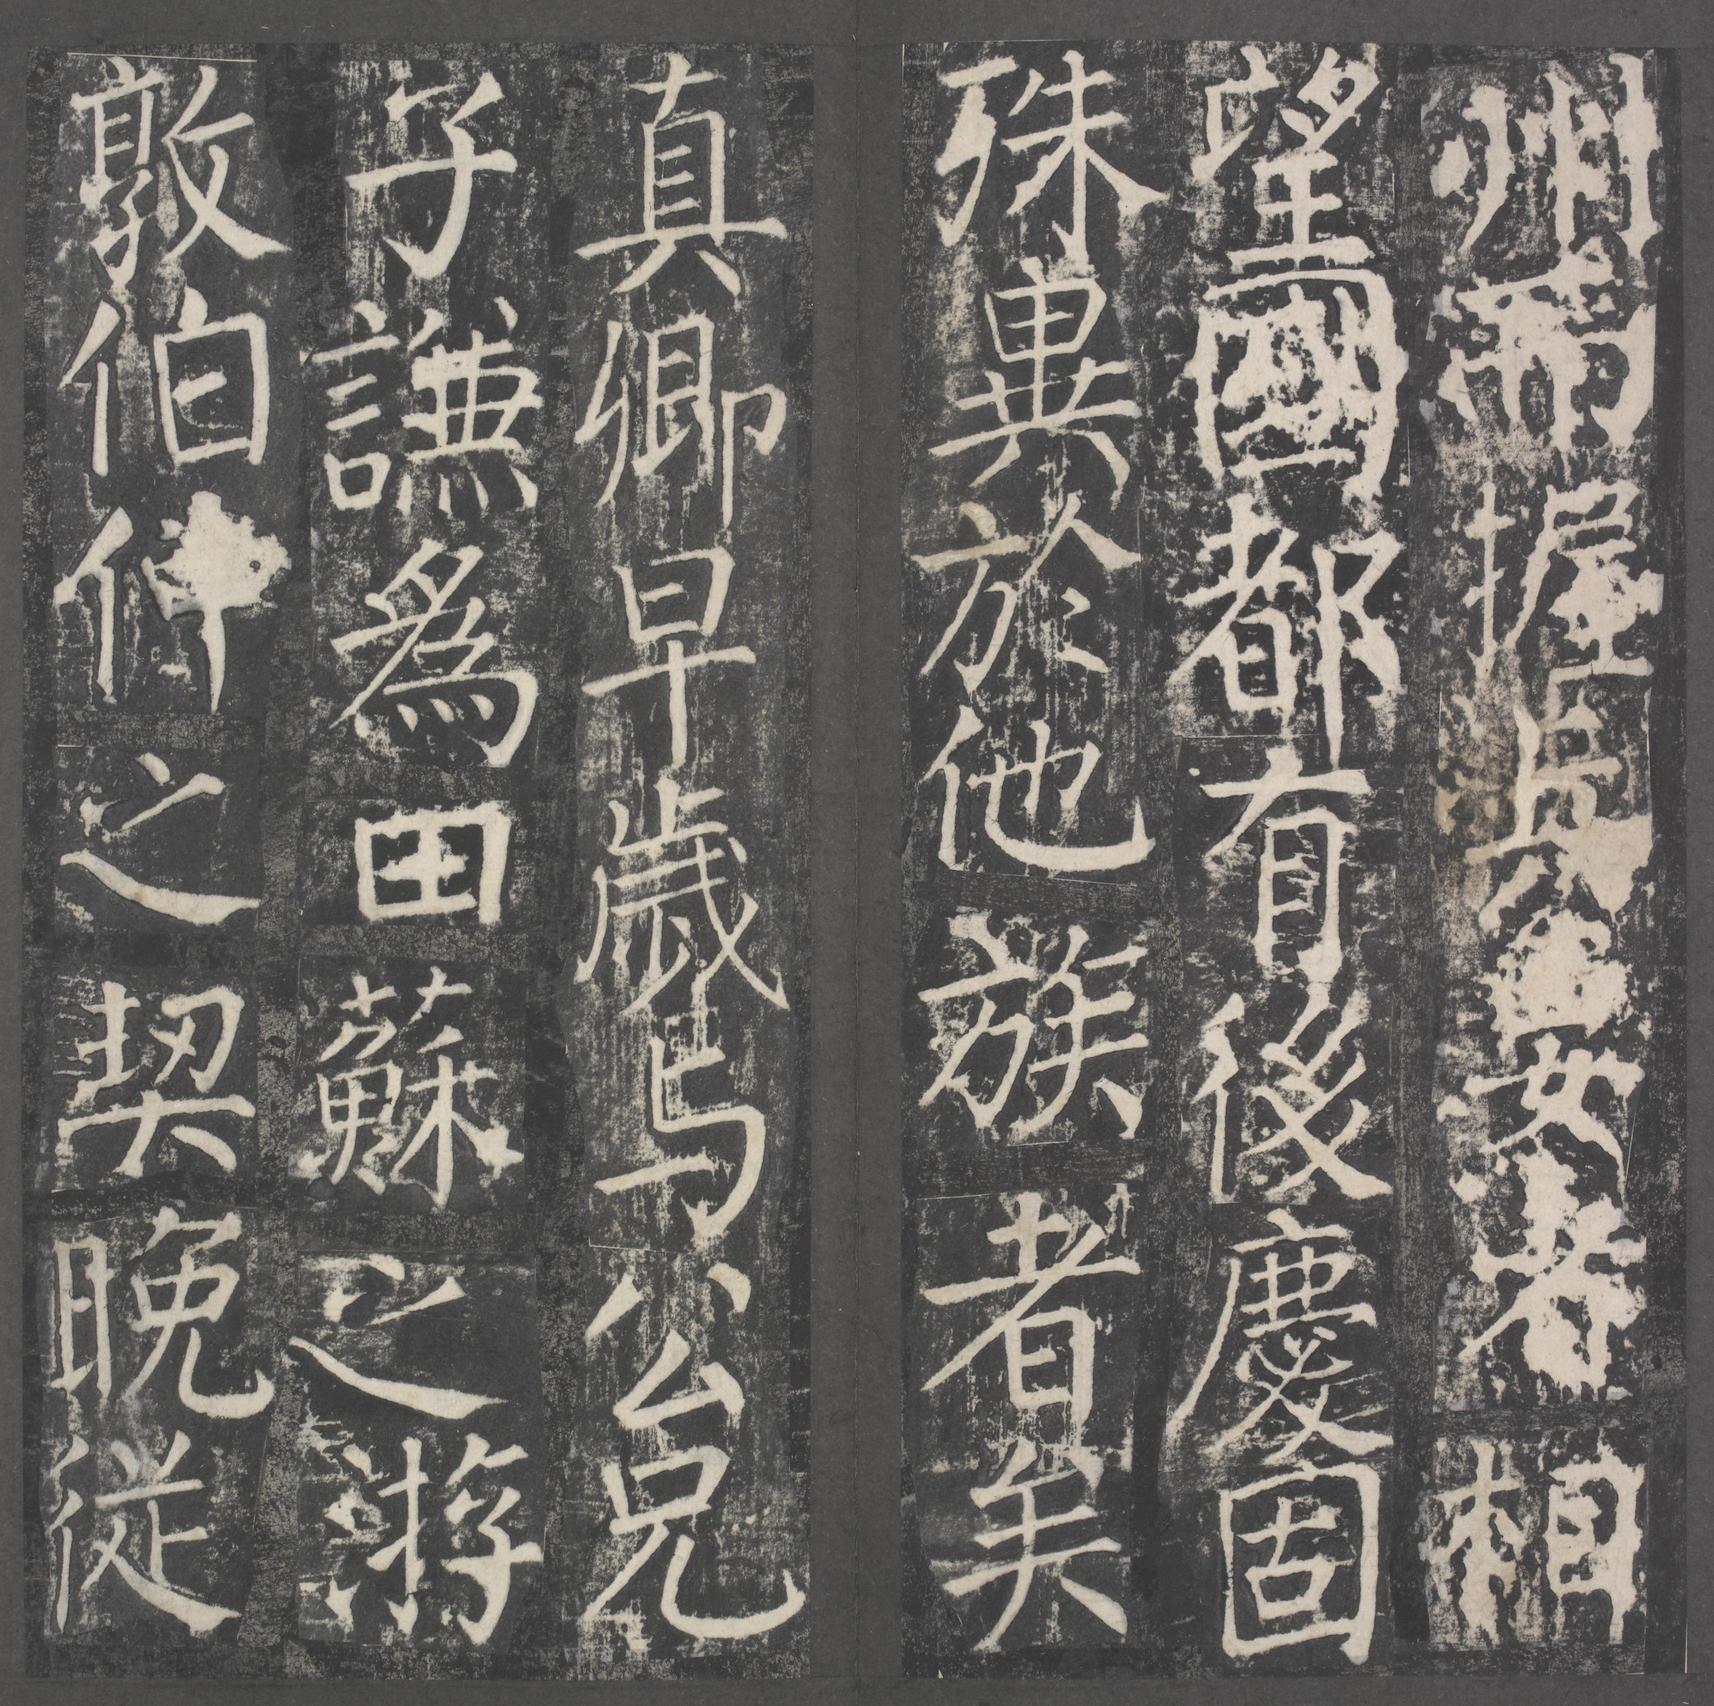 州而握兵要者相
望國都有後慶固
殊異於他族者矣
真卿早歲与公兄
子謙爲田蘇之游
敦伯仲之契晚従